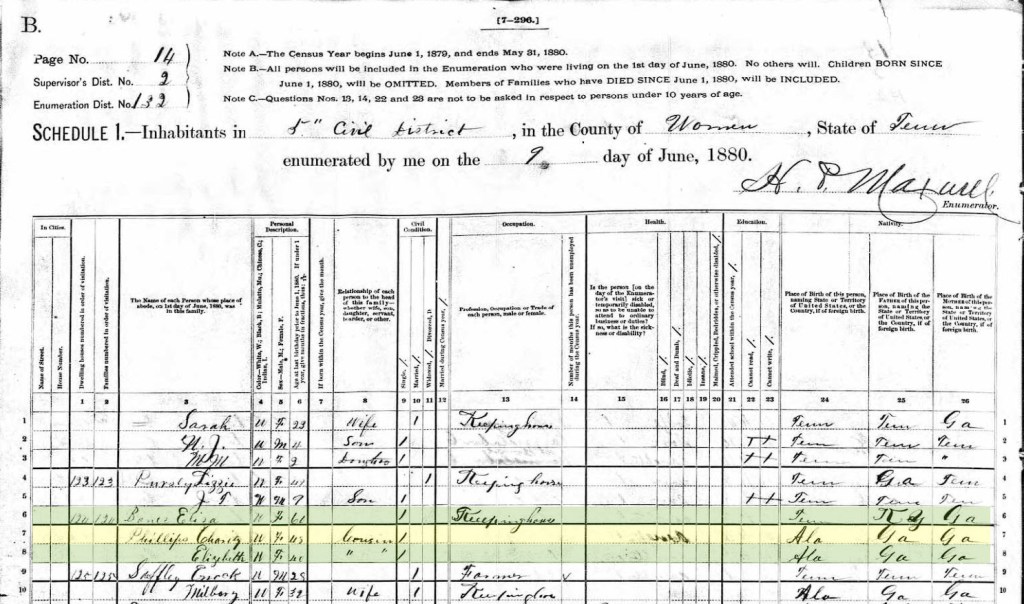 B.
[7-296.]
Page No. 14
Supervisor's Dist. No. 2
Enumeration Dist. No. 132
Note A.—The Census Year begins June 1, 1879, and ends May 31, 1880.
Note B.—All persons will be included in the Enumeration who were living on the 1st day of June, 1880. No others will. Children BORN SINCE
June 1, 1880, will be OMITTED. Members of Families who have DIED SINCE June 1, 1880, will be INCLUDED.
Note C.—Questions Nos. 13, 14, 22 and 23 are not to be asked in respect to persons under 10 years of age.
SCHEDULE 1.—Inhabitants in 5" Civil District, in the County of, State of Tenn
enumerated by me on the 9 day of June, 1880.
H. P. Maxwell
Enumerator.
In Cities. Personal Description. Civil Condition. Occupation. Health. Education. Nativity.
Name of Street.
House Number.
Dwelling houses numbered in order of visitation.
Families numbered in order of visitation.
The Name of each Person whose place of abode, on 1st day of June, 1880, was in this family.
Color—White, W.; Black, B.; Mulatto, Mu.; Chinese, C.; Indian, I.
Sex—Male, M.; Female, F.
Age at last birthday prior to June 1, 1880. If under 1 year, give months in fractions, thus:
If born within the Census year, give the month.
Relationship of each person to the head of this family—whether wife, son, daughter, servant, boarder, or other.
Single, /
Married, /
Widowed, / Divorced, D.
Married during Census year, /
Profession, Occupation or Trade of each person, male or female.
Number of months this person has been unemployed during the Census year.
Is the person [on the day of the Enumerator's visit] sick or temporarily disabled, so as to be unable to attend to ordinary business or duties? If so, what is the sickness or disability?
Blind, /
Deaf and Dumb, /
Idiotic, /
Insane, /
Maimed, Crippled, Bedridden, or otherwise disabled, /
Attended school within the Census year, /
Cannot read, /
Cannot write, /
Place of Birth of this person, naming State or Territory of United States, or the Country, if of foreign birth.
Place of Birth of the FATHER of this person, naming the State or Territory of United States, or the Country, if of foreign birth.
Place of Birth of the MOTHER of this person, naming the State or Territory of United States, or the Country, if of foreign birth.
1 2 3 4 5 6 7 8 9 10 11 12 13 14 15 16 17 18 19 20 21 22 23 24 25 26
1 Sarah W F 23 Wife / Keeping house Tenn Tenn Ga 1
2 W M 4 Son / Tenn Tenn Tenn 2
3 M M W F 2 / Tenn Tenn " 3
4 123 123 Lizzie W F / Keeping house Tenn Ga Tenn 4
5 J T W M 9 Son / Tenn Tenn Tenn 5
6 124 124 Eliza W F 60 / Keeping house Tenn Ky Ga 6
7 Phillips Charity W F Cousin / Ala Ga Ga 7
8 Elizabeth W F " " / Ala Ga Ga 8
9 125 125 Enock W M 28 / Farmer Tenn Tenn Tenn 9
10 W F 32 Wife / Ala Ga Ga 10